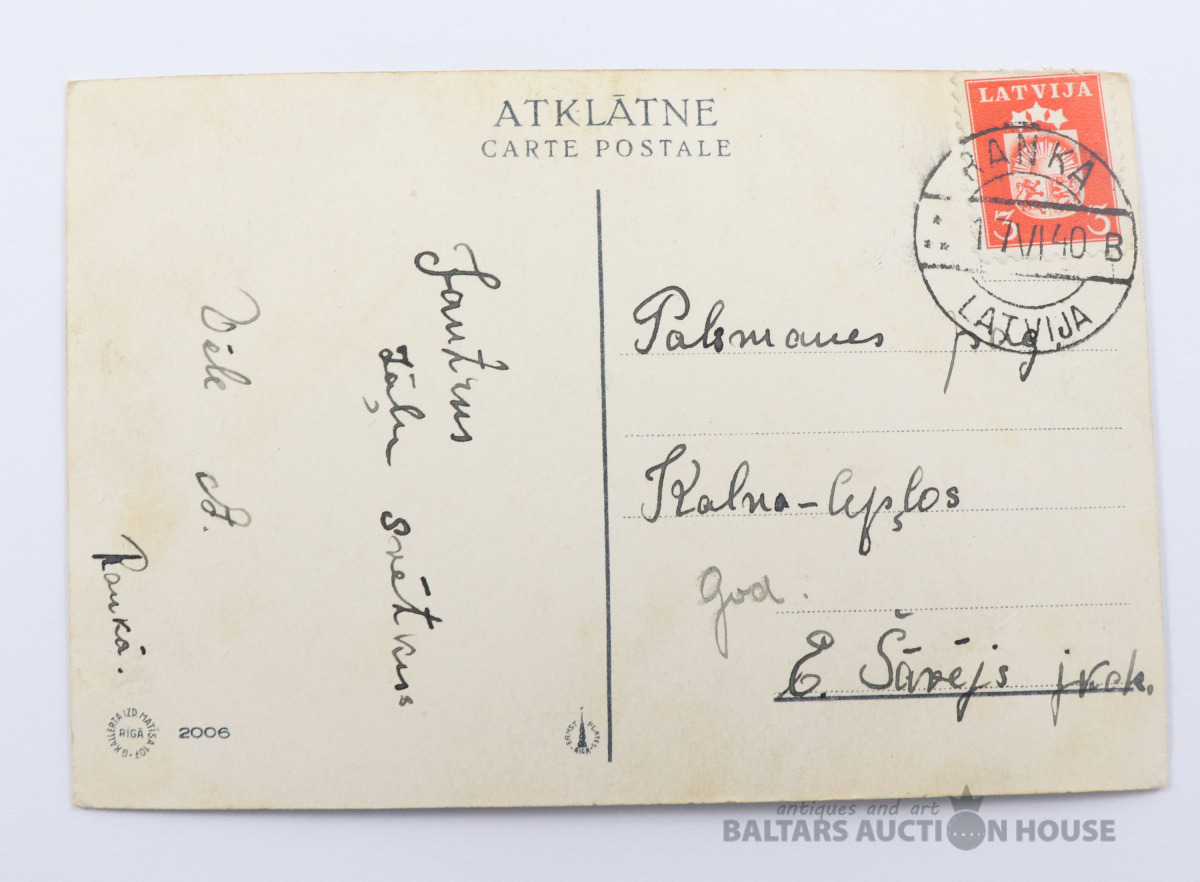 ATKLĀTNE
CARTE POSTALE
LATVIJA
3 3
RANKA
17 VI 40 B
LATVIJA
Jautrus
Jāņu
svētkus
Vēle A.
Rankā.
Palsmanes pag.
Kalna-
God.
E. Šārējs
G.KALLERTA IZD. MATĪSA 107
RĪGA
2006
ERNST PLATES
RIGA
antiques and art
BALTARS AUCTION HOUSE